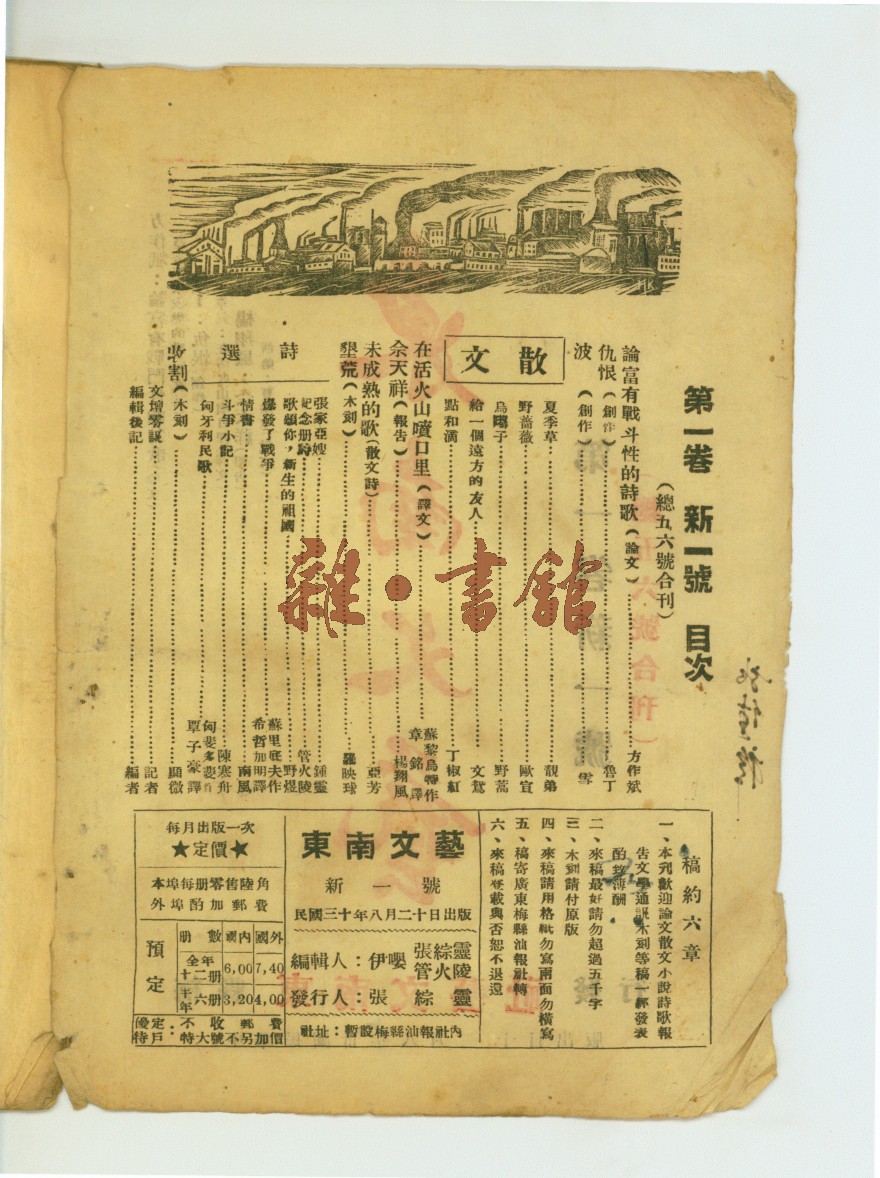 第一卷 新一號 目次
（總五六號合刊）
論富有戰斗性的詩歌（論文）……方作斌
仇恨（創作）……魯丁
波（創作）……雪
散文
夏季草……靚弟
野薔薇……歐宣
烏 子……野蒿
給一個遠方的友人……文鴛
點和滴……丁椒紅
在活火山噴口里（譯文）……蘇黎烏特作 章銘譯
余天祥（報告）……楊翔風
未成熟的歌（散文詩）……亞芳
墾荒（木刻）……羅映球
詩選
張家亞嫂……鍾靈
紀念册詩……管火陵
歌頌你，新生的祖國……野煜
爆發了戰爭……蘇里 夫作 希哲加明譯
情書……南風
斗爭小記……陳寒舟
匈牙利民歌……匈斐多斐作 覃子豪譯
收割（木刻）……顯微
文壇零訊……記者
編輯後記……編者
稿約六章
一、本刋歡迎論文散文小說詩歌報
告文學通訊木刻等稿一經發表
酌致薄酬
二、來稿最好請勿超過五千字
三、木刻請付原版
四、來稿請用格紙勿寫兩面勿橫寫
五、稿寄廣東梅縣汕報社轉
六、來稿登載與否恕不退還
東南文藝
新一號
民國三十年八月二十日出版
編輯人：伊嚶 張綜靈 管火陵
發行人：張綜靈
社址：暫設梅縣汕報社內
每月出版一次
★定價★
本埠每册零售陸角
外埠酌加郵費
預定
册數 國內 國外
全年十二册 6,00 7,40
半年六册 3,20 4,00
優待定戶：不收郵費 特大號不另加價
雜·書館